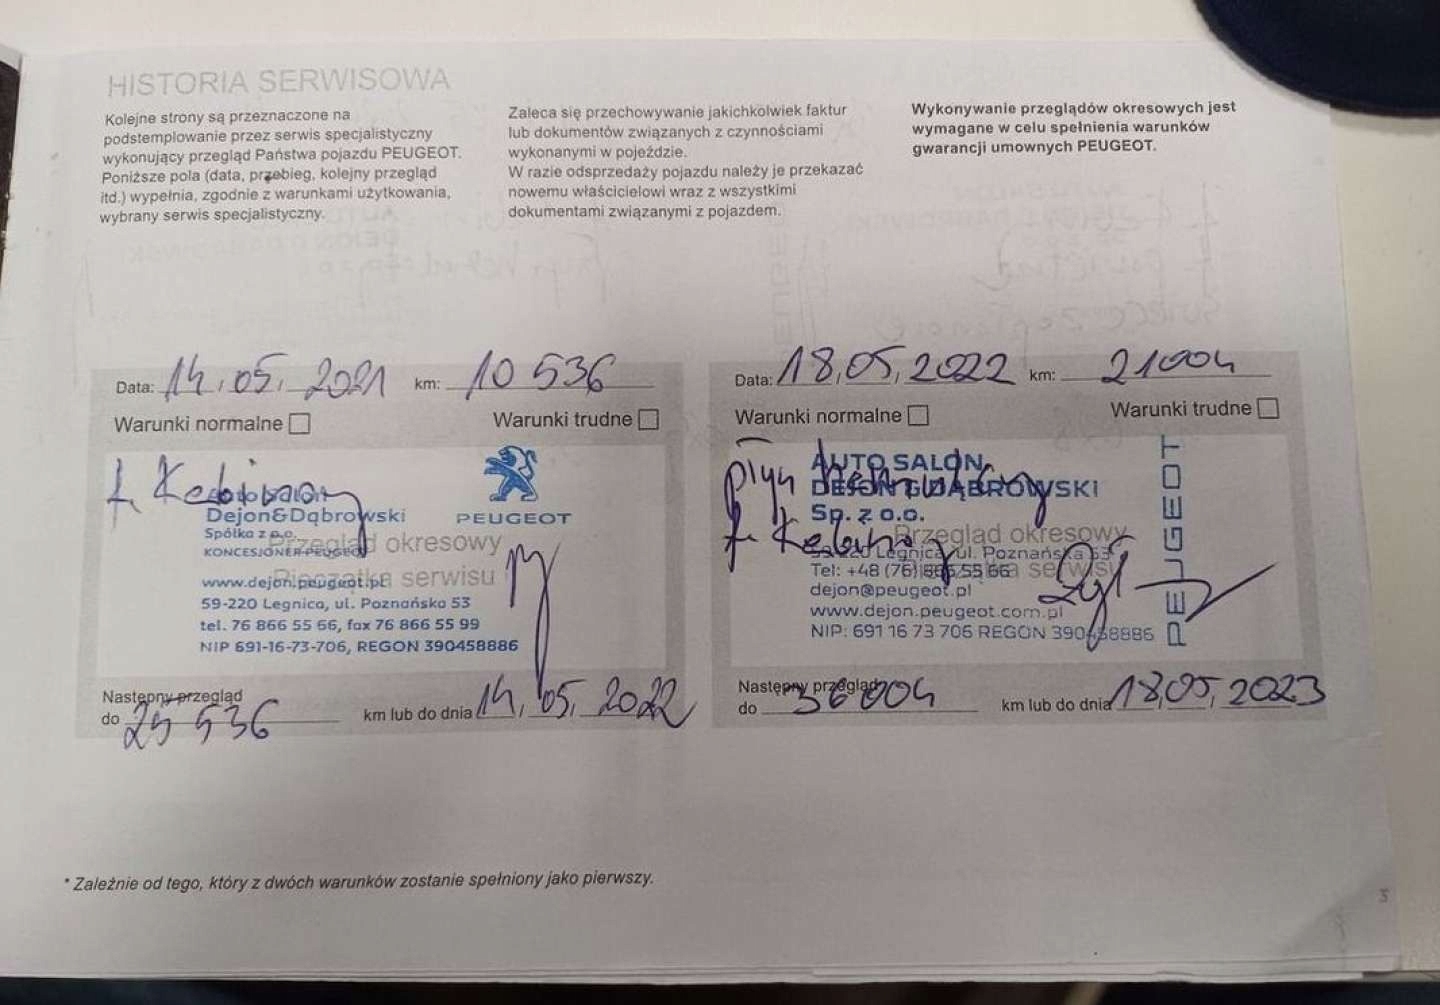 HISTORIA SERWISOWA
Kolejne strony są przeznaczone na
podstemplowanie przez serwis specjalistyczny
wykonujący przegląd Państwa pojazdu PEUGEOT.
Poniższe pola (data, przebieg, kolejny przegląd
itd.) wypełnia, zgodnie z warunkami użytkowania,
wybrany serwis specjalistyczny.
Zaleca się przechowywanie jakichkolwiek faktur
lub dokumentów związanych z czynnościami
wykonanymi w pojeździe.
W razie odsprzedaży pojazdu należy je przekazać
nowemu właścicielowi wraz z wszystkimi
dokumentami związanymi z pojazdem.
Wykonywanie przeglądów okresowych jest
wymagane w celu spełnienia warunków
gwarancji umownych PEUGEOT.
Data: 14.05.2021 km: 10 536
Warunki normalne Warunki trudne
f. Kabinowy
Dejon&Dąbrowski
Spółka z o.o.
KONCESJONER PEUGEOT
PEUGEOT
Przegląd okresowy
Pieczątka serwisu
www.dejon.peugeot.pl
59-220 Legnica, ul. Poznańska 53
tel. 76 866 55 66, fax 76 866 55 99
NIP 691-16-73-706, REGON 390458886
Następny przegląd
do 25 536 km lub do dnia 14.05.2022
Data: 18.05.2022 km: 21004
Warunki normalne Warunki trudne
płyn hamulcowy
AUTO SALON
DEJON & DĄBROWSKI
Sp. z o.o.
f. Kabinowy
Przegląd okresowy
59-220 Legnica, ul. Poznańska 53
Tel: +48 (76) 866 55 66
Pieczątka serwisu
dejon@peugeot.pl
www.dejon.peugeot.com.pl
NIP: 691 16 73 706 REGON 390458886
PEUGEOT
Następny przegląd
do 36004 km lub do dnia 18.05.2023
* Zależnie od tego, który z dwóch warunków zostanie spełniony jako pierwszy.
3